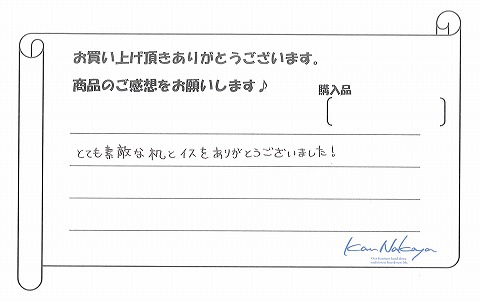 お買い上げ頂きありがとうございます。
商品のご感想をお願いします♪
購入品
[ ]
とても素敵な机とイスをありがとうございました!
Kan Nakaya